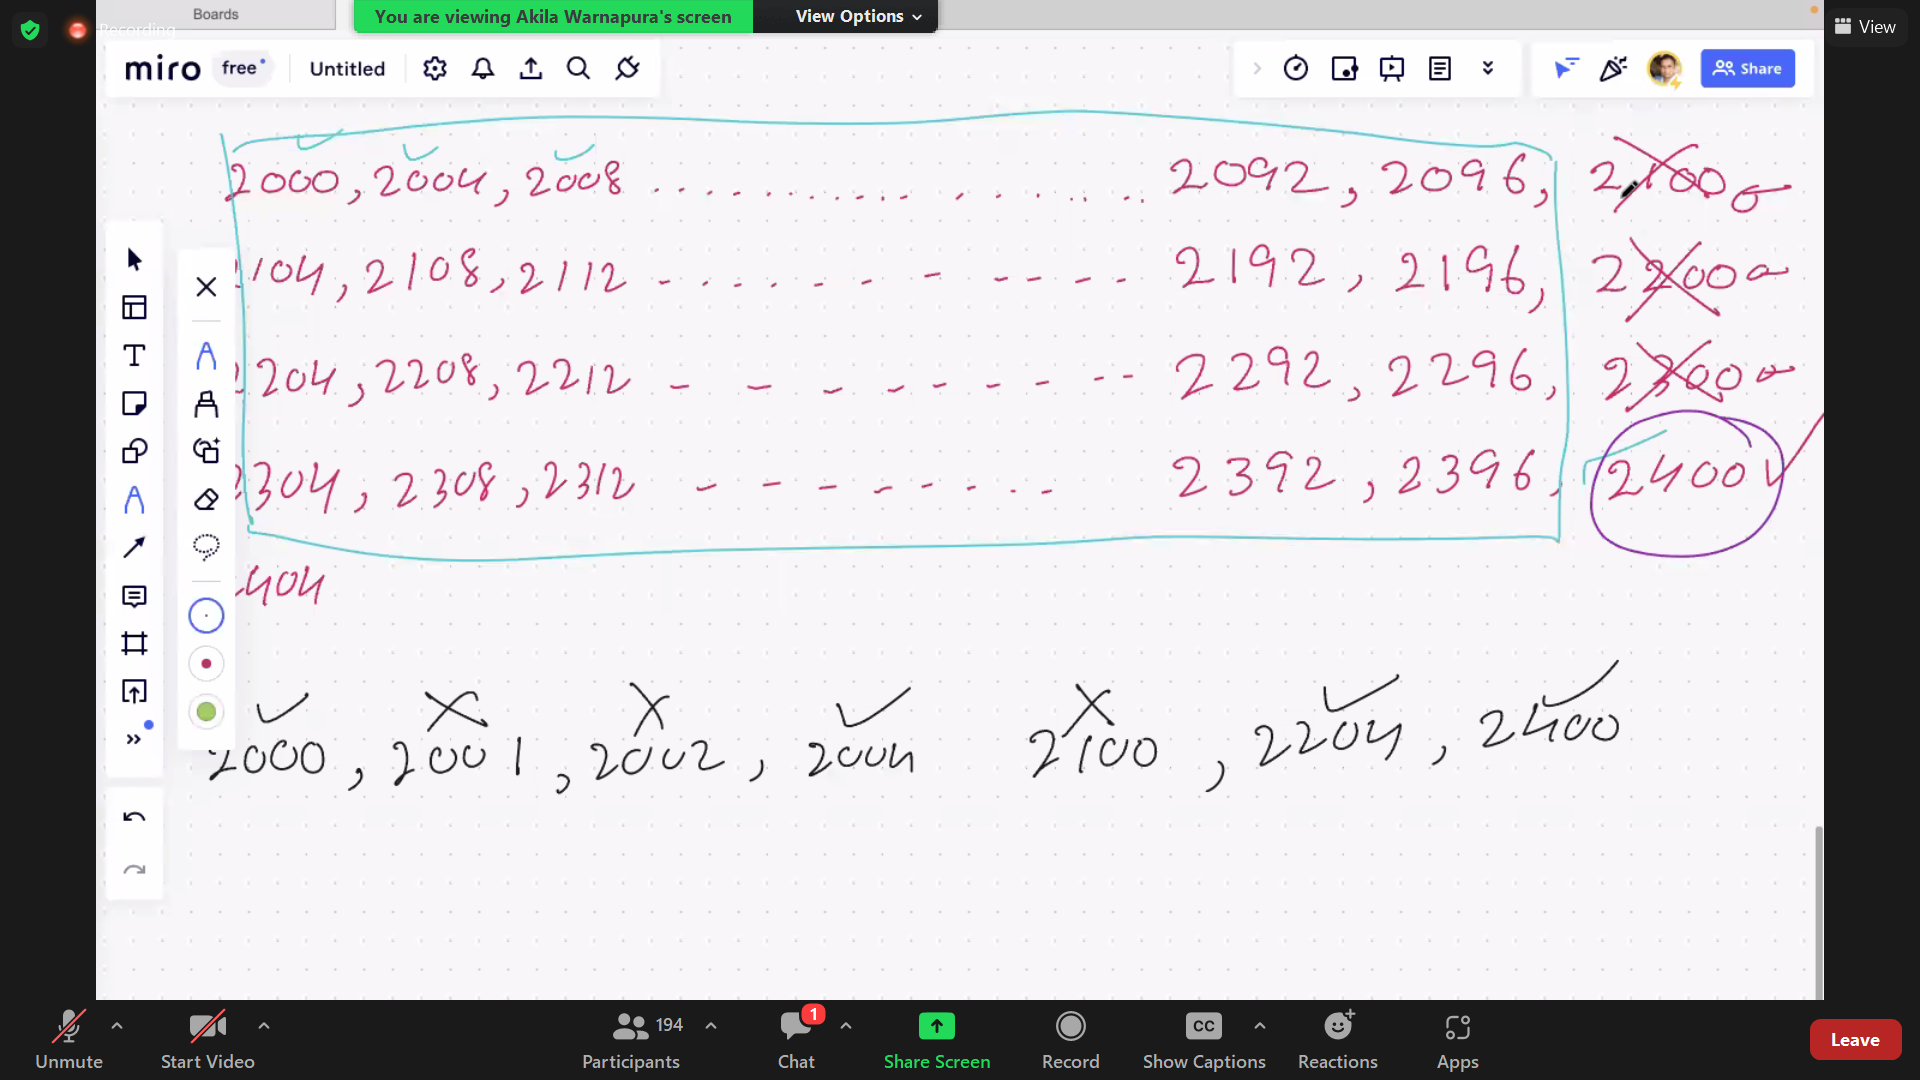 Boards
You are viewing Akila Warnapura's screen
View Options
Recording
View
miro free Untitled
Share
2000, 2004, 2008 .................... 2092, 2096, 2100
2104, 2108, 2112 - ....... - - - - - 2192, 2196, 2200
2204, 2208, 2212 - - - - - - - - - 2292, 2296, 2300
2304, 2308, 2312 - - - - - - .. 2392, 2396, 2400
2404
2000, 2001, 2002, 2004 2100, 2204, 2400
Unmute
Start Video
194
Participants
1
Chat
Share Screen
Record
CC
Show Captions
Reactions
Apps
Leave